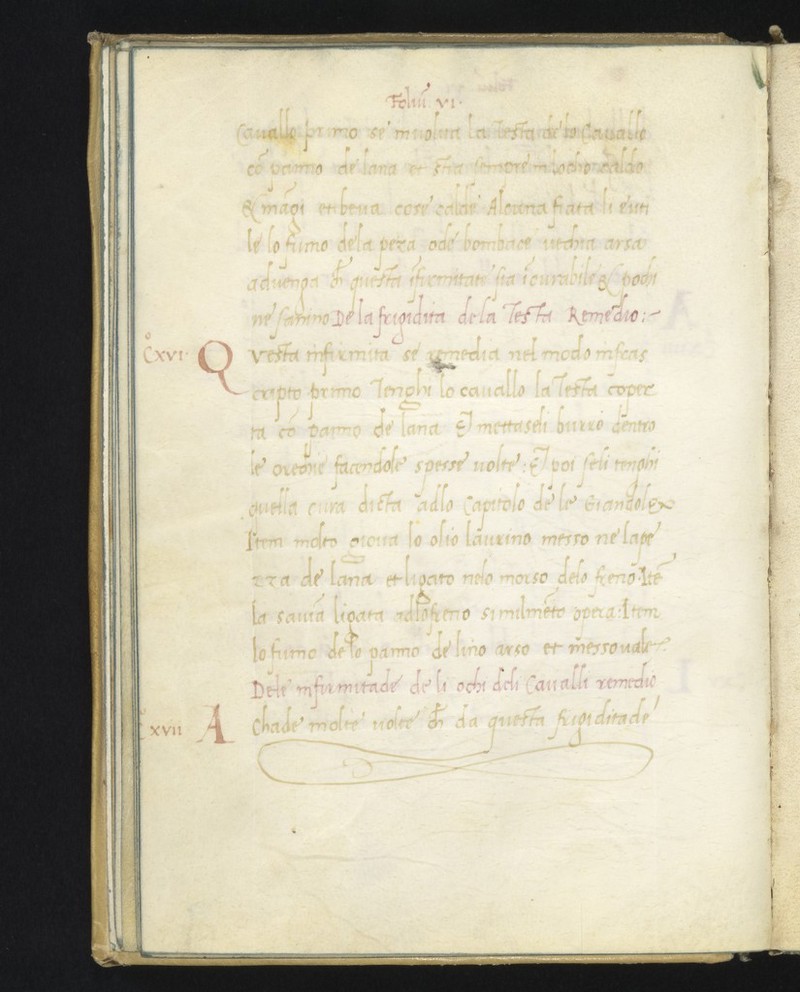 Foliũ VI.
Cauallo primo se inuolua la Testa de lo Cauallo
cõ panno de lana et stia sempre in locho caldo
& mãgi et beua cose calde Alcuna fiata li é uti
le lo fumo dela peza o de bombace uechia arsa
aduenga ch̃ questa ĩfirmitate sia ĩcurabile & pochi
ne sanino De la frigidita de la Testa Remedio:~
CXVI. Q vesta infirmita se remedia nel modo infras
cripto primo Tenghi lo cauallo la Testa coper
ta cõ panno de lana Et mettaseli burro dentro
le orechie facendole spesse uolte: Et poi seli tenghi
quella cura dicta adlo Capitolo de le Giandole
Item molto gioua lo olio laurino messo ne la pe
zza de lana et ligato nelo morso delo freno: Itẽ
la sauia ligata adlo freno similmẽte opera: Item
lo fumo de lo panno de lino arso et messo uale~
Dele infirmitade de li ochi deli Caualli remedio
XVII A Chade molte uolte ch̃ da questa frigiditade